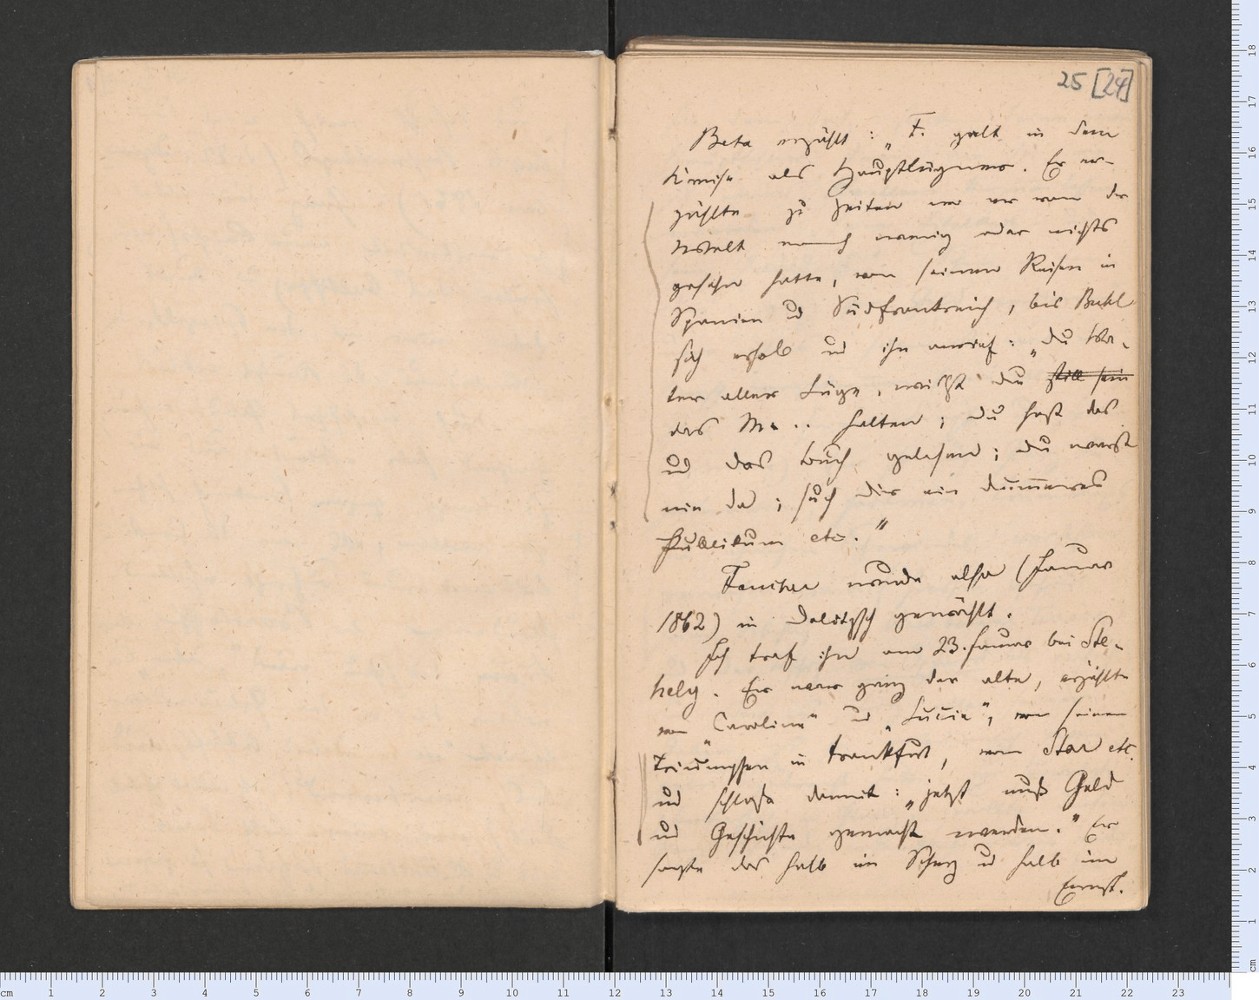 25 [24]
Beta erzählt: „F. galt in dem
Kreise als Hauptlügner. Er er-
zählte zu Zeiten wo er von der
Welt noch wenig oder nichts
gesehen hatte, von seinen Reisen in
Spanien und Südfrankreich, bis
sich erhob und ihn anrief: „Du Va-
ter aller Lüge, willst Du still sein
das M... halten; Du hast das
und das Buch gelesen; Du warst
nie da; such dir ein dummeres
Publikum etc."
Faucher wurde also (Januar
1862) in Delitzsch gewählt.
Ich traf ihn am 23. Januar bei Ste-
hely. Er war ganz der alte, erzählte
von „Caroline" und „Lucie", von seinen
Triumphen in Frankfurt, vom Star etc.
und schloß damit: „jetzt muß Geld
und Geschichte gemacht werden." Er
sagte das halb im Scherz und halb im
Ernst.